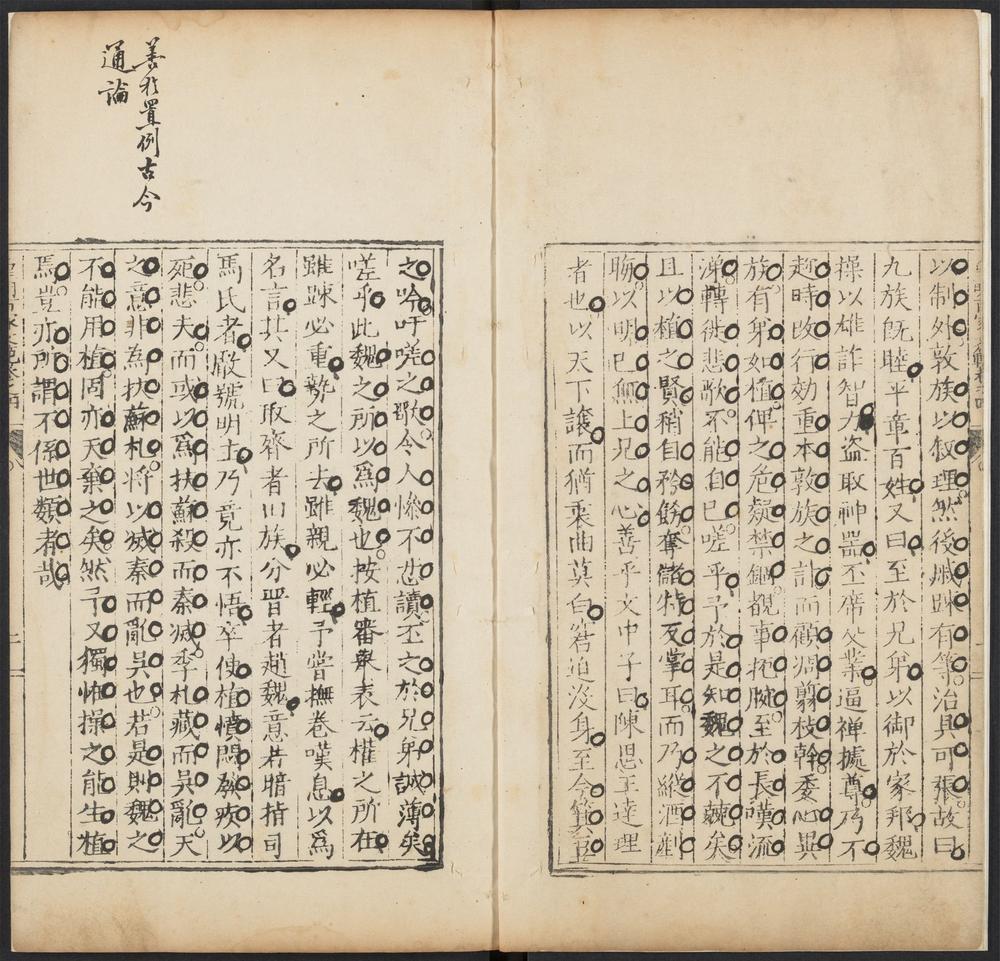 以制外敦族以敘理然後戚疎有等治具可張故曰
九族既睦平章百姓又曰至於兄弟以御於家邦魏
操以雄詐智力盜取神器丕席父業逼禪據尊乃不
趁時改行効重本敦族之計而顧凋翦枝幹委心異
族有弟如植俾之危疑禁錮觀事扼腕至於長嘆流
涕轉徙悲歌不能自已嗟乎予於是知魏之不競矣
且以植之賢稍自矜飭奪儲特反掌耳而乃縱酒
晦以明已無上兄之心善乎文中子曰陳思王達理
者也以天下讓而猶衷曲莫白窘迫沒身至今箕豆
之吟吁嗟之歌令人慘不忍讀丕之於兄弟誠薄矣
嗟乎此魏之所以為魏也按植審舉表云權之所在
雖踈必重勢之所去雖親必輕予嘗撫卷嘆息以爲
名言其又曰取齊者田族分晋者趙魏意若暗指司
馬氏者厥號明主乃竟亦不悟卒使植憤悶發疾以
死悲夫而或以爲扶蘇殺而秦滅季札藏而吳亂天
之意非為扶蘇札將以滅秦而亂吳也若是則魏之
不能用植固亦天棄之矣然予又獨怖操之能生植
焉豈亦所謂不係世類者哉
善於置例古今
通論